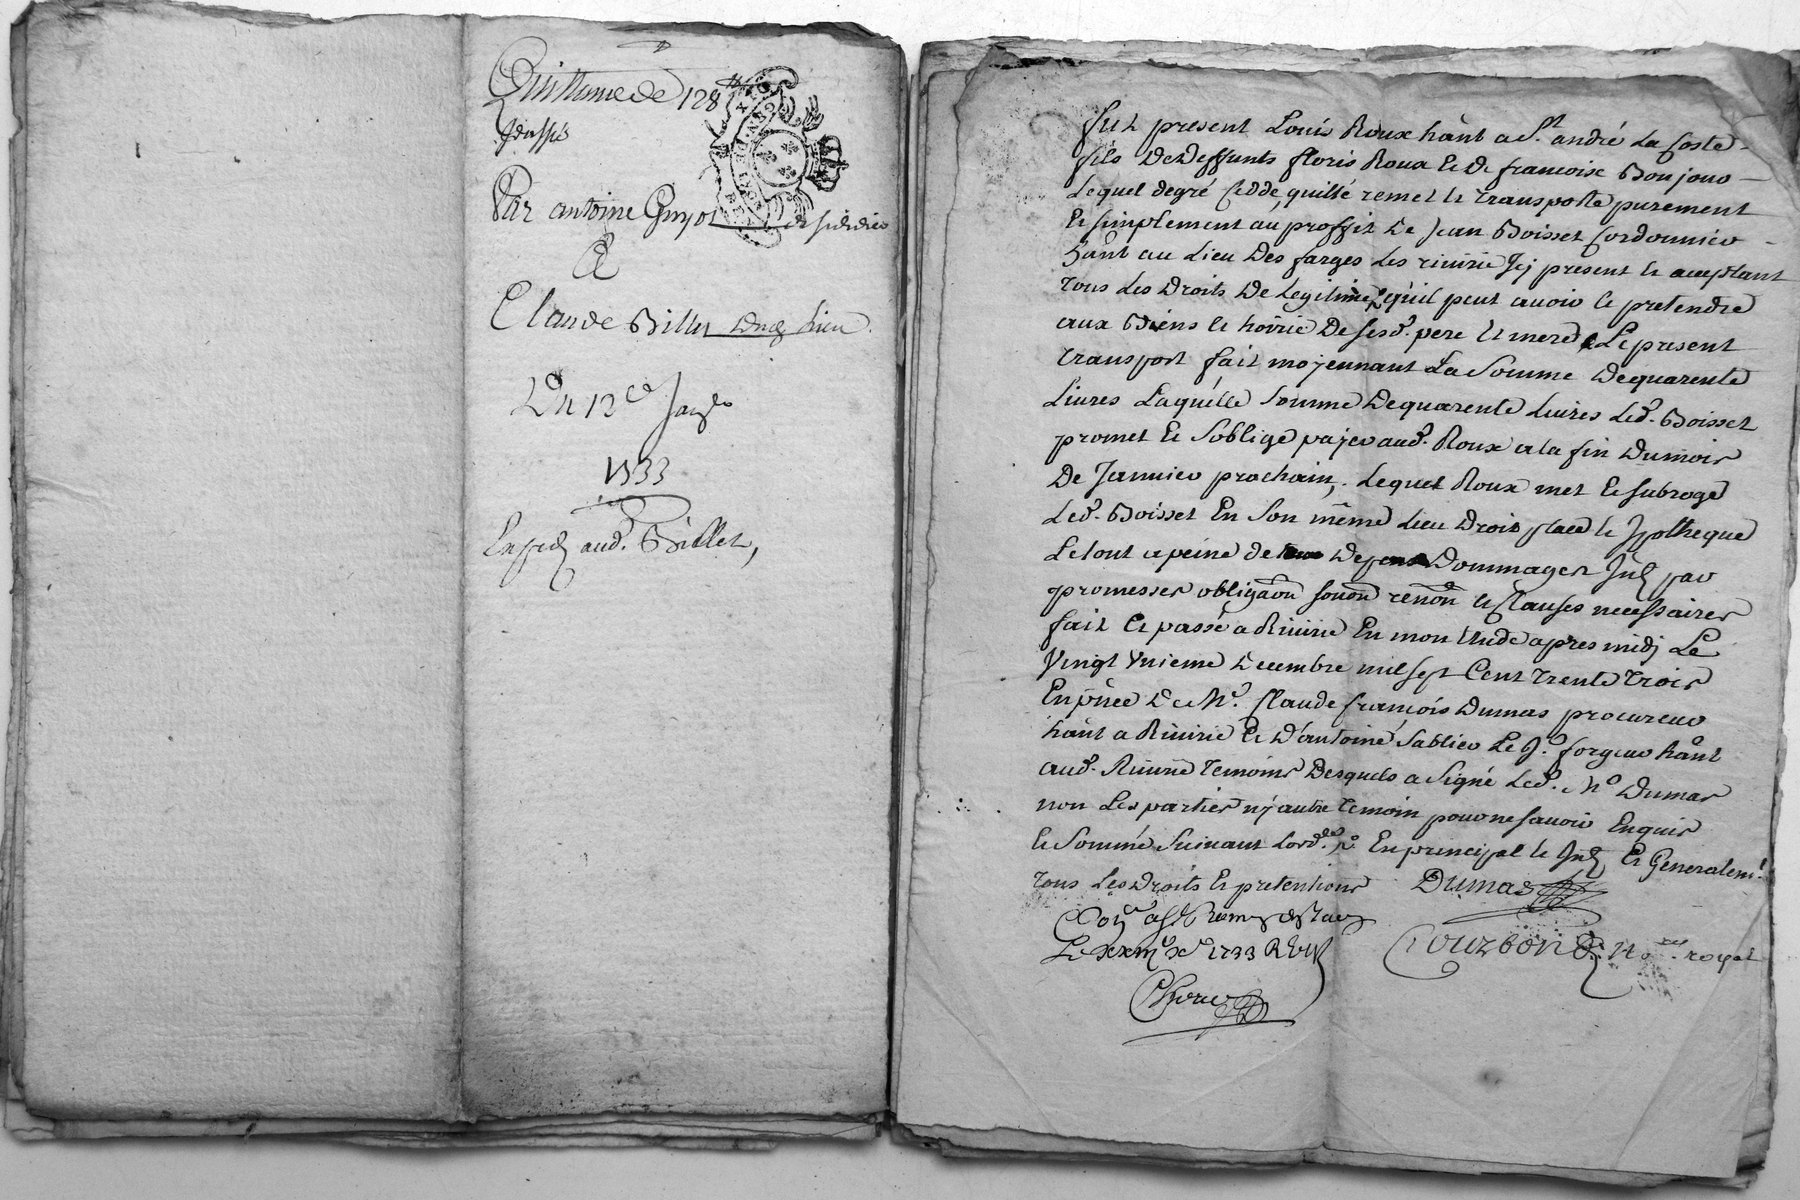 Quittance de 128 ₶
passée
Par antoine Guyot
A
Claude Billet dud. lieu
Du 12e Janv
1733
Exped aud. Billet,
fut present Louis Roux hânt a St. andré La Coste
fils de deffunts floris Roux et de francoise Bonjour
Lequel degré cedde, quitte remet et transporte purement
et simplement au proffit de Jean Boisset Cordonnier
hânt au Lieu des farges Les riuirie Icj present et acceptant
tous Les Droits De Legitime quil peut auoir et pretendre
aux Biens et hoirie De sesd. pere et mere Le present
transport fait moyennant La Somme de quarente
Liures Laquelle Somme de quarente Liures Led. Boisset
promet et Soblige payer aud. Roux a la fin du mois
De Januier prochain, Lequel Roux met et subroge
Led. Boisset En Son même Lieu Droit place et Ipotheque
Le tout a peine de Depens Dommages Int par
promesses obligaon soumon renon et Clauses necessaires
fait et passé a Riuirie En mon Etude apres midj Le
Vingt Vnieme Decembre mil sept Cent trente trois
En pñce De Me. Claude francois Dumas procureur
hânt a Riuirie et D'antoine Sablier Le J. forgeur hânt
aud. Riuirie temoins Desquels a Signé Led. Me Dumas
non Les parties nj autre temoin pour ne sauoir Enquis
et Sommé Suiuant Lord.ce En principal et Int Et Generalemt.
tous Les Droits et pretentions Dumas
1733
Courbon No.re royal